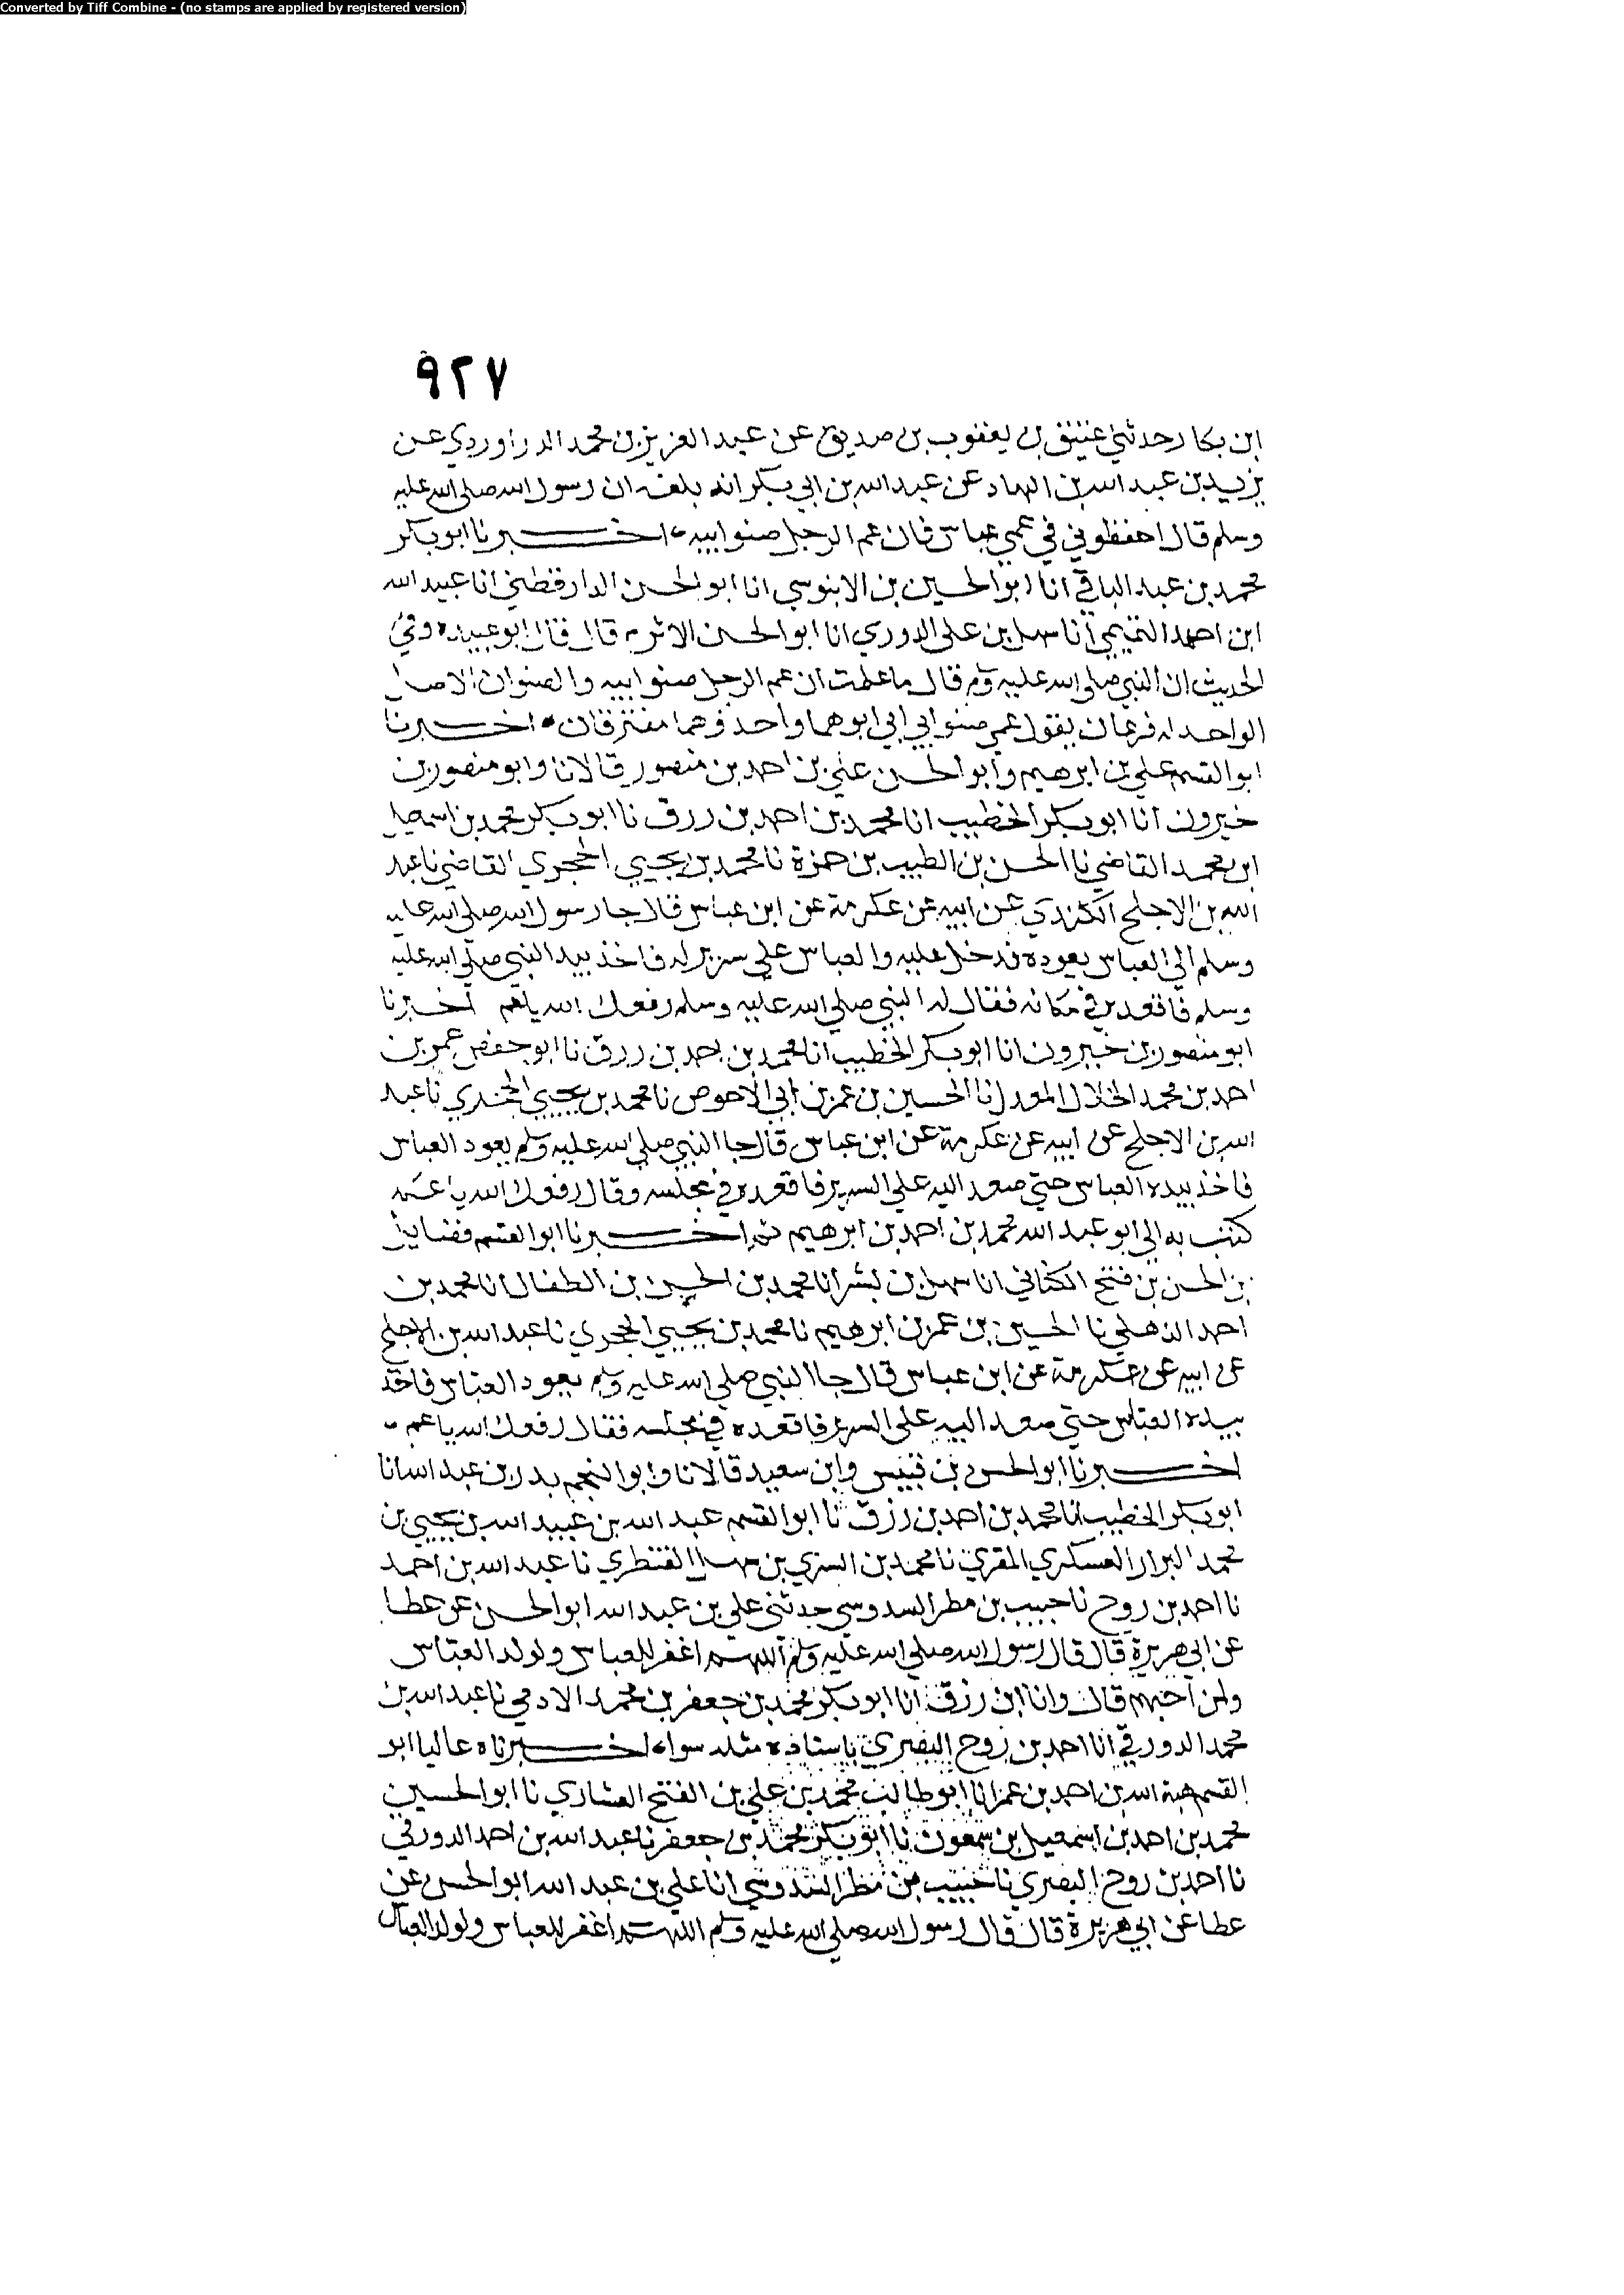 Converted by Tiff Combine - (no stamps are applied by registered version)
٩٢٧
ابن بكار حدثني عتيق بن يعقوب بن صديق عن عبد العزيز بن محمد الدراوردي عن
يزيد بن عبد الله بن الهاد عن عبد الله بن ابي بكر انه بلغه ان رسول الله صلى الله عليه
وسلم قال احفظوني في عمي عباس فان عم الرجل صنو ابيه اخبرنا ابو بكر
محمد بن عبد الباقي انا ابو الحسين بن الابنوسي انا ابو الحسن الدارقطني انا عبيد الله
ابن احمد التميمي انا سهل بن علي الدوري انا ابو الحسن الاثرم قال قال ابو عبيدة وفي
الحديث ان النبي صلى الله عليه وسلم قال ما علمت ان عم الرجل صنو ابيه والصنوان الاصل
الواحد له فرعان يقول عمي صنو ابي ابي ابوهما واحد وهما مفترقان اخبرنا
ابو القسم علي بن ابرهيم وابو الحسن علي بن احمد بن منصور قالا نا وابو منصور بن
خيرون انا ابو بكر الخطيب انا محمد بن احمد بن رزق نا ابو بكر محمد بن اسمعيل
ابن محمد القاضي نا الحسن بن الطيب بن حمزة نا محمد بن يحيي الحجري القاضي نا عبد
الله بن الاجلح الكندي عن ابيه عن عكرمة عن ابن عباس قال جا رسول الله صلى الله عليه
وسلم الي العباس يعوده فدخل عليه والعباس علي سرير له فاخذ بيد النبي صلى الله عليه
وسلم فاقعده في مكانه فقال له النبي صلى الله عليه وسلم رفعك الله يا عم اخبرنا
ابو منصور بن خيرون انا ابو بكر الخطيب انا محمد بن احمد بن رزق نا ابو حفص عمر بن
احمد بن محمد الخلال المعدل نا الحسين بن عمر بن ابي الاحوص نا محمد بن يحيي الحجري نا عبد
الله بن الاجلح عن ابيه عن عكرمة عن ابن عباس قال جا النبي صلى الله عليه وسلم يعود العباس
فاخذ بيده العباس حتي صعد اليه علي السرير فاقعده في مجلسه وقال رفعك الله يا عم
كتب به الي ابو عبد الله محمد بن احمد بن ابرهيم اخبرنا ابو القسم فضايل
بن الحسن بن فتح الكتاني انا سهل بن بشر انا محمد بن الحسين بن الطفال انا محمد بن
احمد الذهلي نا الحسين بن عمر بن ابرهيم نا محمد بن يحيي الحجري نا عبد الله بن الاجلح
عن ابيه عن عكرمة عن ابن عباس قال جا النبي صلى الله عليه وسلم يعود العباس فاخذ
بيده العباس حتي صعد اليه علي السرير فاقعده في مجلسه فقال رفعك الله يا عم
اخبرنا ابو الحسن بن قبيس وابن سعيد قالا نا وابو النجم بدر بن عبد الله انا
ابو بكر الخطيب انا محمد بن احمد بن رزق نا ابو القسم عبد الله بن عبيد الله بن يحيي بن
محمد البزار العسكري المقري نا محمد بن السري بن سهل القنطري نا عبد الله بن احمد
نا احمد بن روح نا حبيب بن مطر السدوسي حدثني علي بن عبد الله ابو الحسن عن عطا
عن ابي هريرة قال قال رسول الله صلى الله عليه وسلم اللهم اغفر للعباس ولولد العباس
ولمن احبهم قال وانا ابن رزق انا ابو بكر محمد بن جعفر بن محمد الادمي نا عبد الله بن
محمد الدورقي انا احمد بن روح البصري باسناده مثله سواء اخبرناه عاليا ابو
القسم هبة الله بن احمد بن عمر انا ابو طالب محمد بن علي بن الفتح العشاري نا ابو الحسين
محمد بن احمد بن اسمعيل بن سمعون نا ابو بكر محمد بن جعفر نا عبد الله بن احمد الدورقي
نا احمد بن روح البصري نا حبيب بن مطر السدوسي انا علي بن عبد الله ابو الحسن عن
عطا عن ابي هريرة قال قال رسول الله صلى الله عليه وسلم اللهم اغفر للعباس ولولد العباس